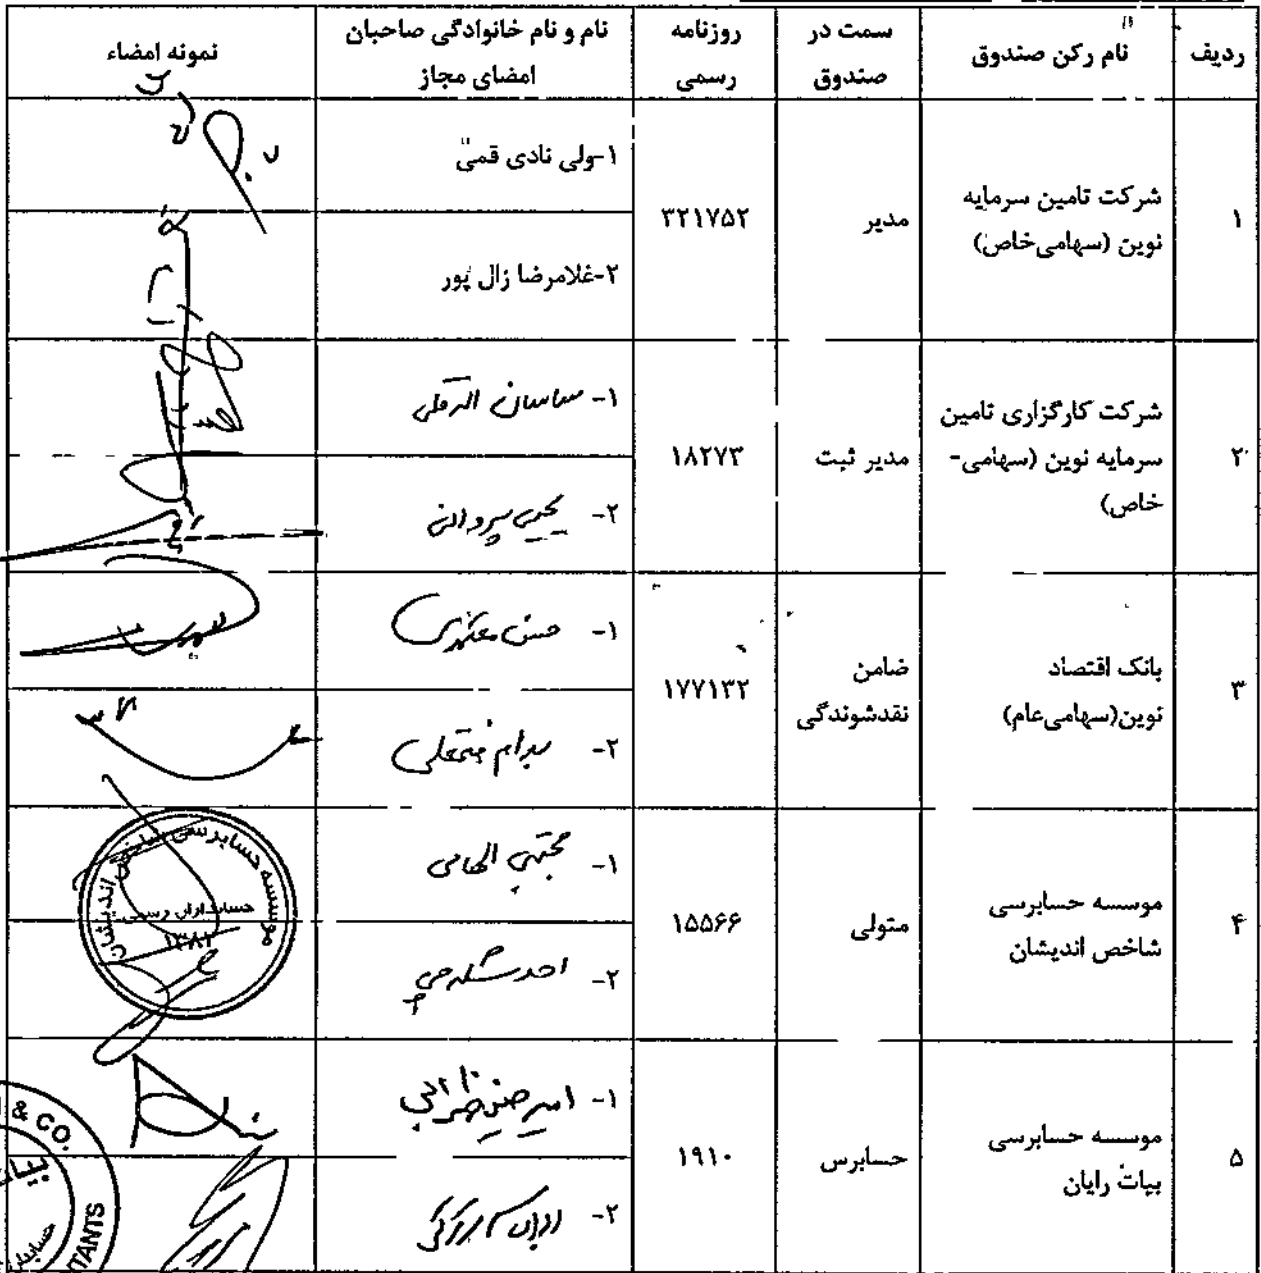 ردیف
نام رکن صندوق
سمت در
صندوق
روزنامه
رسمی
نام و نام خانوادگی صاحبان
امضای مجاز
نمونه امضاء
۱
شرکت تامین سرمایه
نوین (سهامی‌خاص)
مدیر
۳۲۱۷۵۲
۱-ولی نادی قمی
۲-غلامرضا زال پور
۲
شرکت کارگزاری تامین
سرمایه نوین (سهامی-
خاص)
مدیر ثبت
۱۸۲۷۳
۱- ساسان اله قلی
۲- یحیی
۳
بانک اقتصاد
نوین(سهامی‌عام)
ضامن
نقدشوندگی
۱۷۷۱۳۲
۱- حسن معتمدی
۲- فتحعلی
۴
موسسه حسابرسی
شاخص اندیشان
متولی
۱۵۵۶۶
۱- مجتبی الهامی
۲- احد
موسسه حسابرسی شاخص اندیشان
حسابداران رسمی
۱۳۸۲
۵
موسسه حسابرسی
بیات رایان
حسابرس
۱۹۱۰
۱- امیر حسین
۲-
& CO.